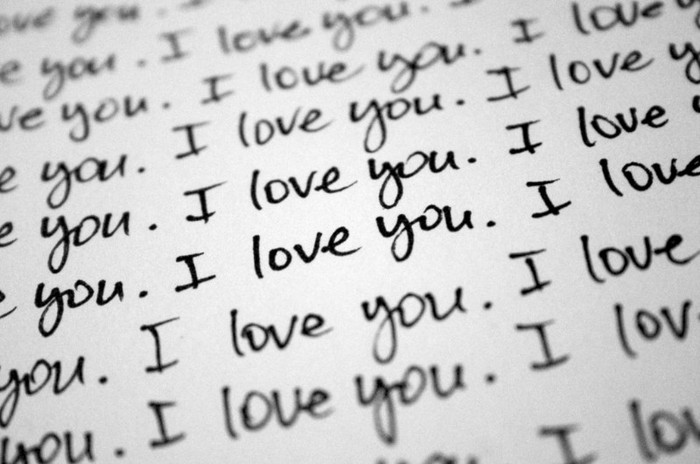 you.
you. I love you.
ve you. I love you. I love
e you. I love you. I love y
e you. I love you. I love
you. I love you. I love
you. I love you. I love
you. I love you. I lov
I lov